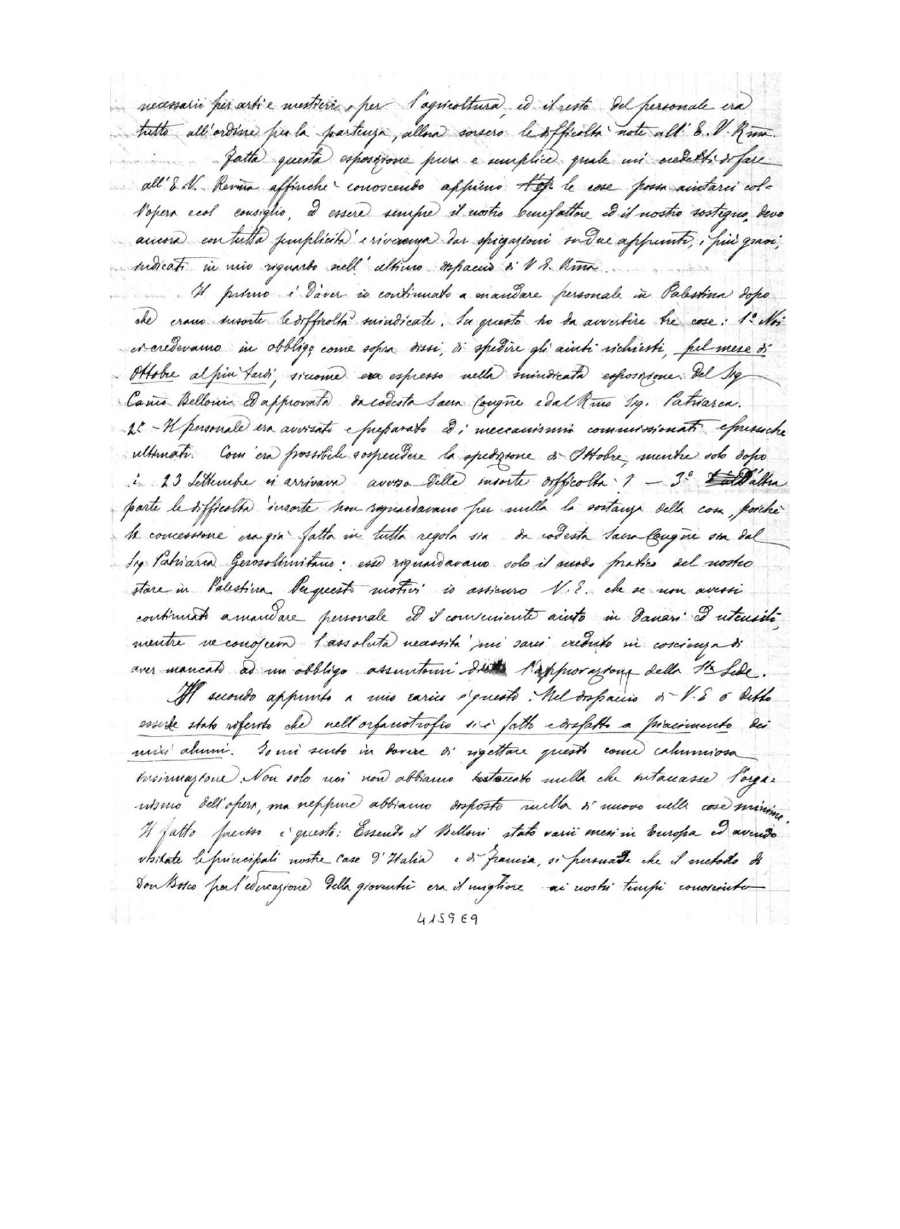 necessarii per arti e mestieri, per l'agricoltura, ed il resto del personale era
tutto all'ordine per la partenza, allora sorsero le difficoltà note all' E. V. Rma.
Fatta questa esposizione pura e semplice quale mi credetti di fare
all'E. V. Revma affinchè conoscendo appieno le cose possa aiutarci col-
l'opera e col consiglio, ed essere sempre il nostro benefattore ed il nostro sostegno, devo
ancora con tutta semplicità e riverenza dar spiegazioni su due appunti, i più gravi,
indicati in mio riguardo nell' ultimo dispaccio di V. E. Rma.
Il primo è d'aver io continuato a mandare personale in Palestina dopo
che erano insorte le difficoltà suindicate. Su questo ho da avvertire tre cose: 1° Noi
ci credevamo in obbligo, come sopra dissi, di spedire gli aiuti richiesti, pel mese di
Ottobre al più tardi, siccome era espresso nella suindicata esposizione del Sig
Canco Belloni ed approvata da codesta Sacra Congñe e dal Rmo Sig. Patriarca.
2° - Il personale era avvisato e preparato ed i meccanismi commissionati e pressochè
ultimati. Com'era possibile sospendere la spedizione di Ottobre, mentre solo dopo
i 23 Settembre ci arrivava avviso delle insorte difficoltà? - 3° D'altra
parte le difficoltà insorte non riguardavano per nulla la sostanza della cosa, poichè
la concessione era già fatta in tutta regola sia da codesta Sacra Congñe sia dal
Sig. Patriarca Gerosolimitano: esse riguardavano solo il modo pratico del nostro
stare in Palestina. Per questi motivi io assicuro V. E. che se non avessi
continuato a mandare personale ed il conveniente aiuto in danari ed utensili,
mentre ne conosceva l'assoluta necessità mi sarei creduto in coscienza di
aver mancato ad un obbligo assuntomi l'approvazione della Sta Sede.
Il secondo appunto a mio carico è questo: Nel dispaccio di V. E è detto
essere stato riferito che nell'orfanotrofio si è fatto e disfatto a piacimento dei
miei alunni. Io mi sento in dovere di rigettare questa come calunniosa
insinuazione. Non solo noi non abbiamo intaccato nulla che intaccasse l'orga-
nismo dell'opera, ma neppure abbiamo disposto nulla di nuovo nelle cose minime.
Il fatto preciso è questo: Essendo il Belloni stato varii mesi in Europa ed avendo
visitate le principali nostre case d'Italia e di Francia, si persuade che il metodo di
Don Bosco per l'educazione della gioventù era il migliore ai nostri tempi conosciuto
4159 E 9